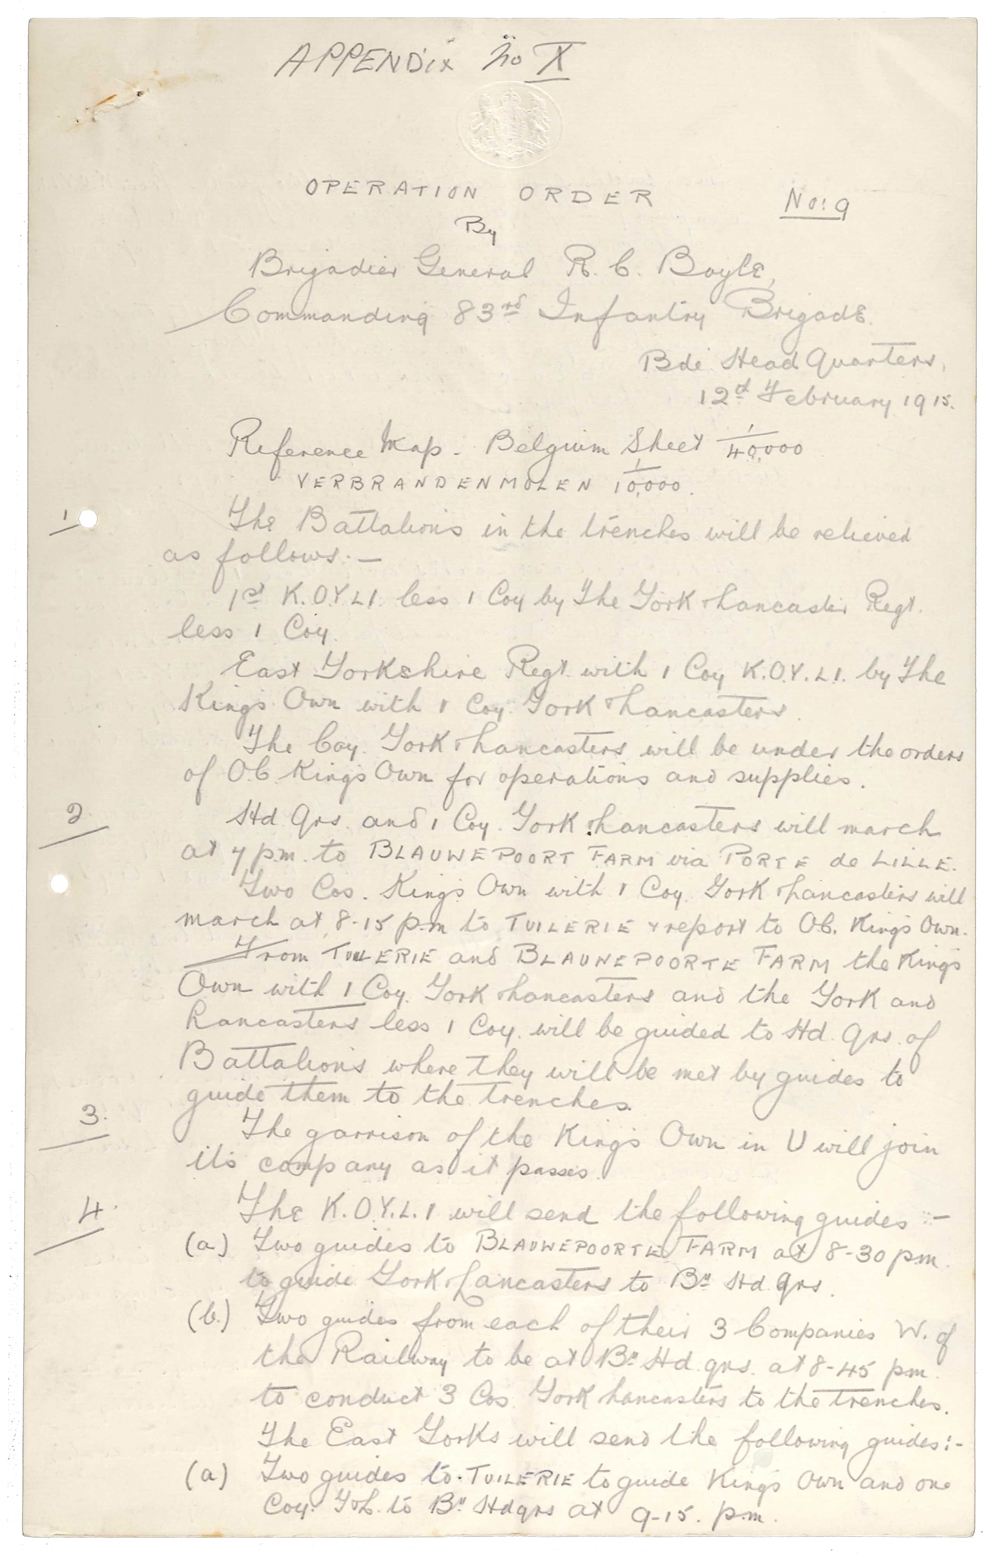 APPENDIX No X
OPERATION ORDER No: 9
By
Brigadier General R. C. Boyle,
Commanding 83rd Infantry Brigade.
Bde Head Quarters,
12th February 1915.
Reference Map. Belgium Sheet 1/40,000
VERBRANDENMOLEN 1/10,000.
1 The Battalions in the trenches will be relieved
as follows:—
1st K.O.Y.L.I. less 1 Coy by The York & Lancaster Regt.
less 1 Coy.
East Yorkshire Regt. with 1 Coy K.O.Y.L.I. by The
King's Own with 1 Coy. York & Lancasters.
The Coy. York & Lancasters will be under the orders
of O.C. King's Own for operations and supplies.
2 Hd Qrs. and 1 Coy. York & Lancasters will march
at 7 p.m. to BLAUWEPOORT FARM via PORTE de LILLE.
Two Cos. King's Own with 1 Coy. York & Lancasters will
march at 8-15 p.m to TUILERIE & report to OC. King's Own.
From TUILERIE and BLAUWEPOORTE FARM the King's
Own with 1 Coy. York & Lancasters and the York and
Lancasters less 1 Coy. will be guided to Hd Qrs. of
Battalions where they will be met by guides to
guide them to the trenches.
3. The garrison of the King's Own in U will join
its company as it passes.
4. The K.O.Y.L.I will send the following guides:—
(a.) Two guides to BLAUWEPOORTE FARM at 8-30 p.m.
to guide York & Lancasters to Bn Hd Qrs.
(b.) Two guides from each of their 3 Companies W. of
the Railway to be at Bn Hd qrs. at 8-45 pm.
to conduct 3 Cos York Lancasters to the trenches.
The East Yorks will send the following guides:-
(a) Two guides to TUILERIE to guide King's Own and one
Coy. Y&L. to Bn Hdqrs at 9-15. p.m.